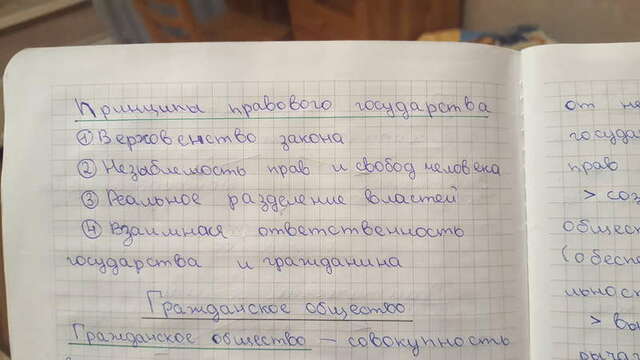 Принципы правового государства
① Верховенство закона
② Незыблемость прав и свобод человека
③ Реальное разделение властей
④ Взаимная ответственность
государства и гражданина
Гражданское общество
Гражданское общество – совокупность
от
прав
>
>